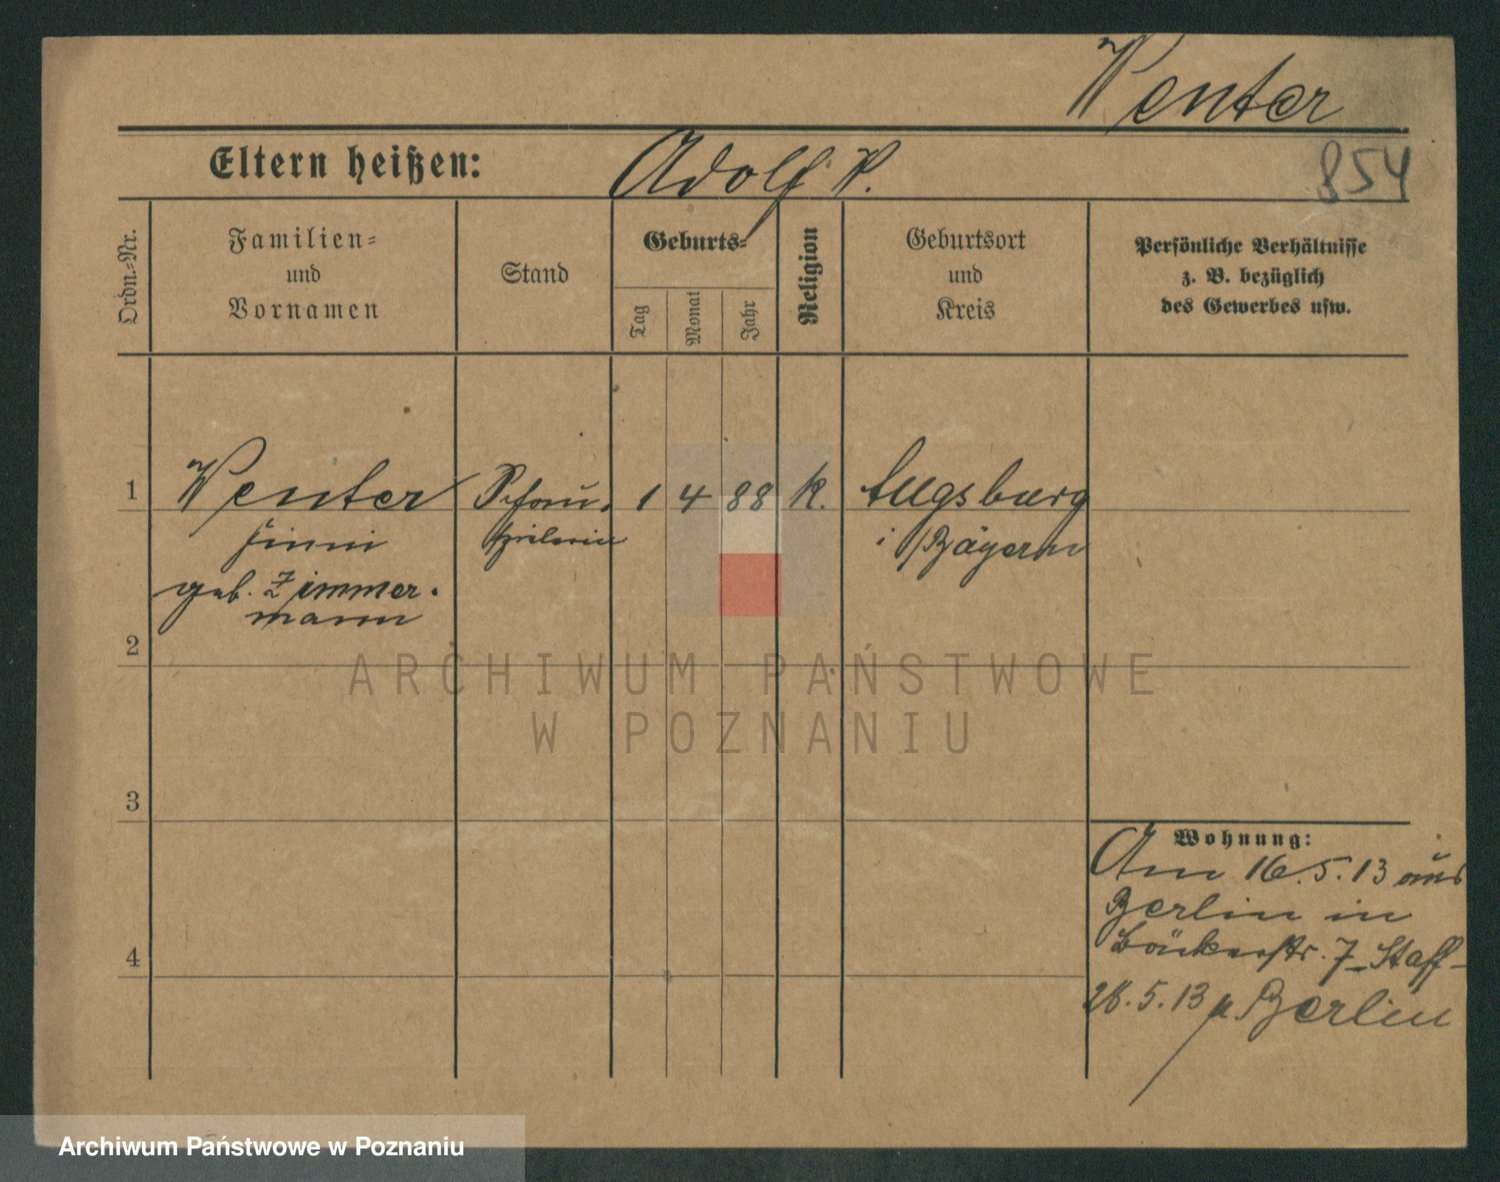 Wenter
Eltern heißen: Adolf P.
854
Ordn.-Nr.
Familien-
und
Vornamen
Stand
Geburts-
Tag
Monat
Jahr
Religion
Geburtsort
und
Kreis
Persönliche Verhältnisse
z. B. bezüglich
des Gewerbes usw.
1 Wenter Schau- 1 4 88 k. Augsburg
spielerin i/Bayern
geb. Zimmer-
mann
2
3
4
Wohnung:
Am 16.5.13 aus
Berlin in
7
26.5.13 n Berlin
ARCHIWUM PAŃSTWOWE
W POZNANIU
Archiwum Państwowe w Poznaniu